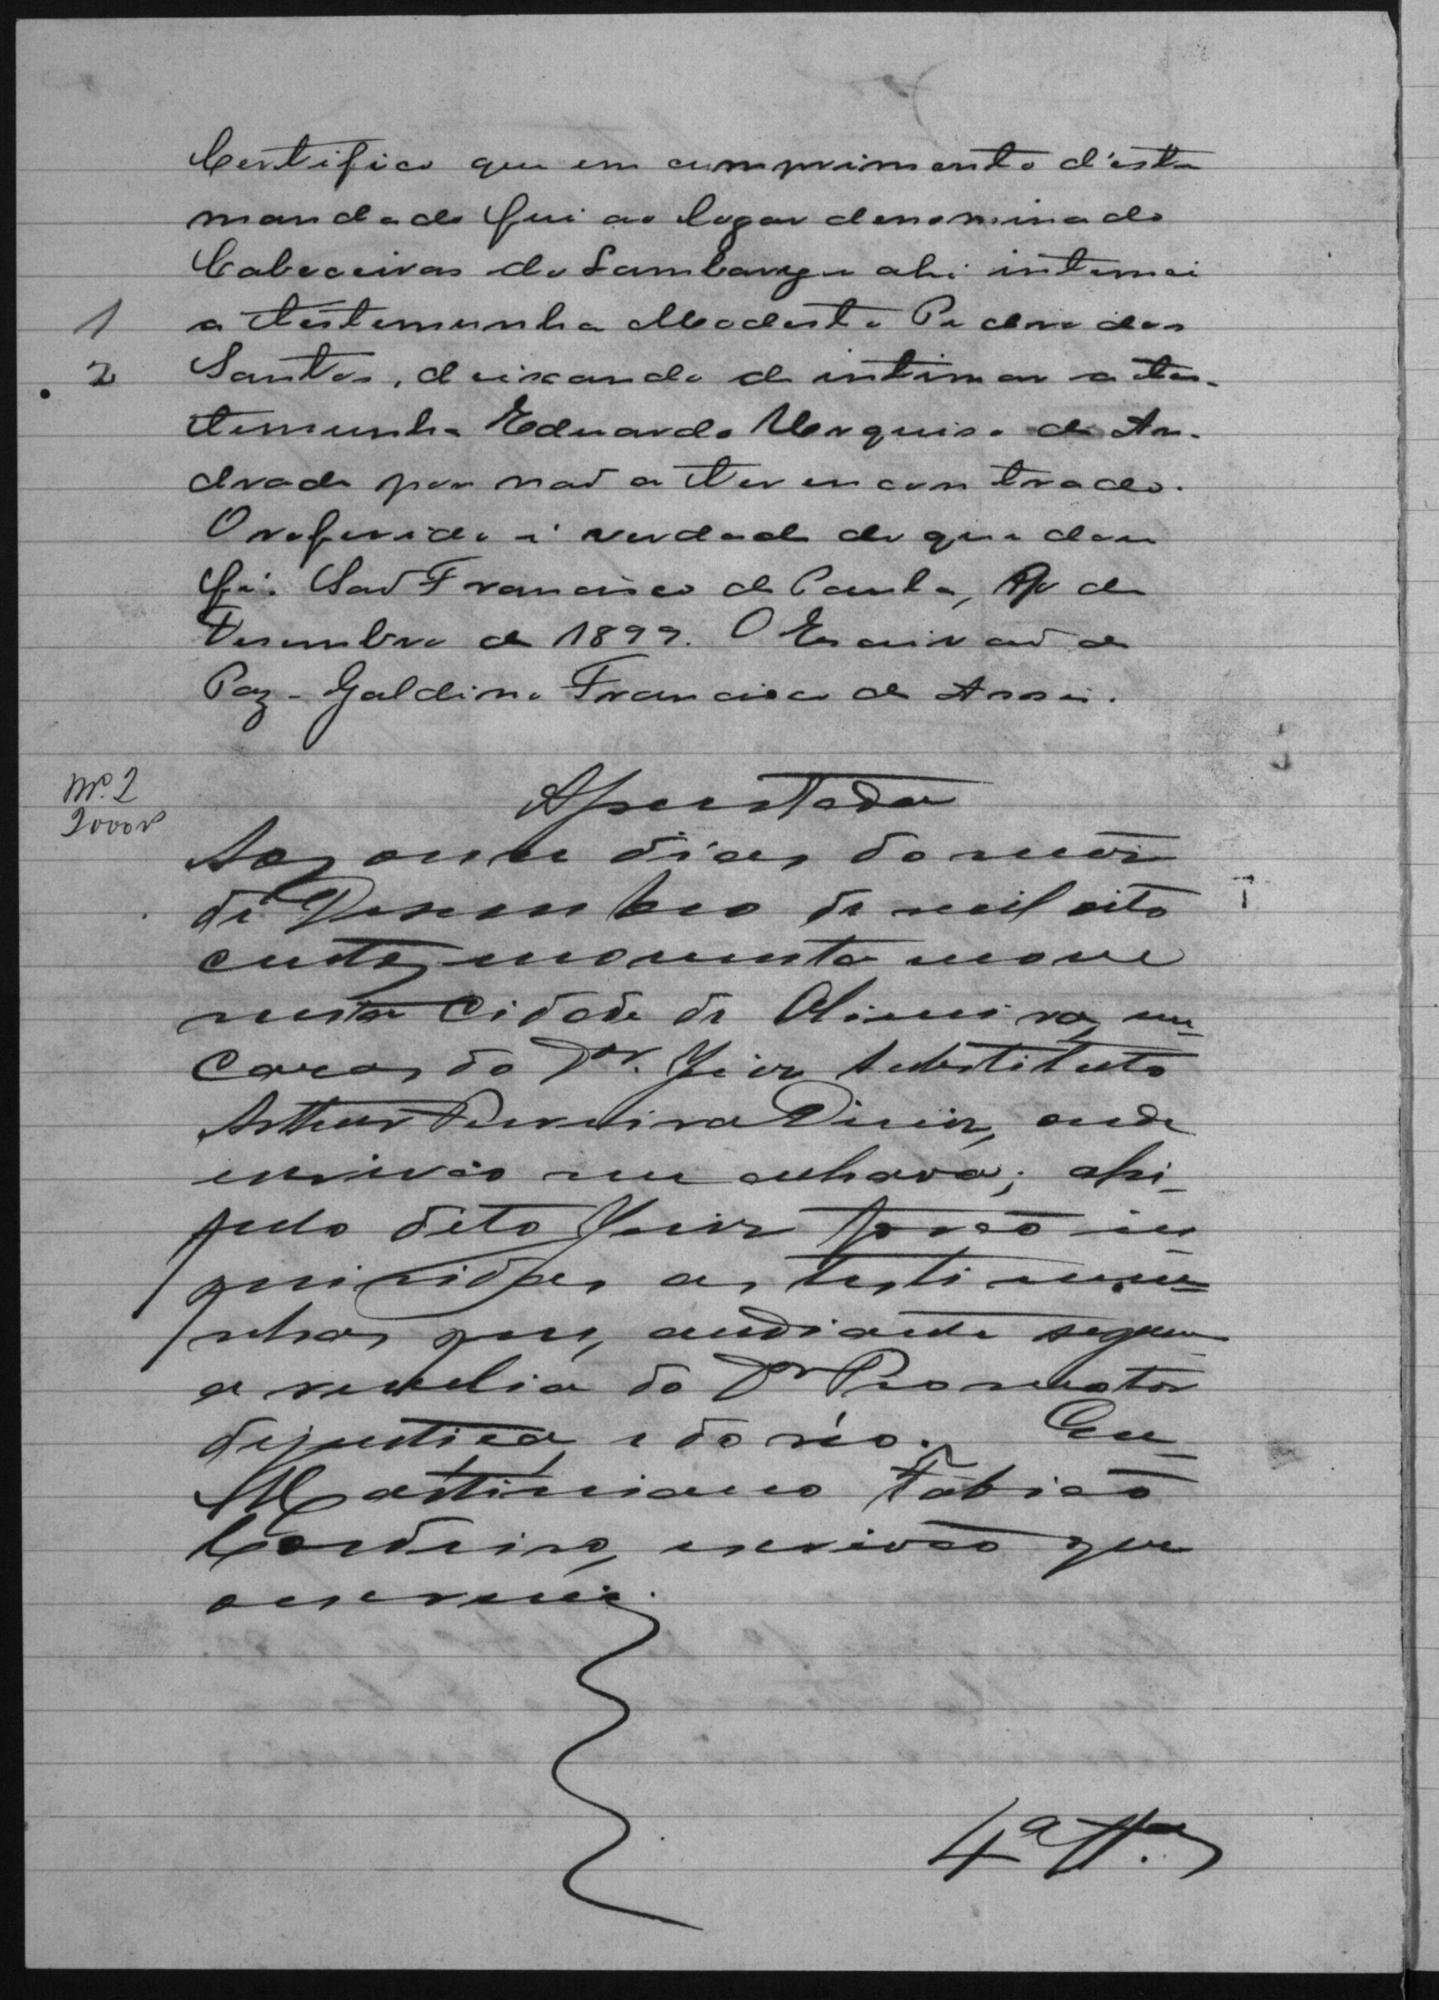 Certifico que em cumprimento d'este
mandado fui ao logar denominado
Cabeceiras do Lambary e ahi intimei
1 a testemunha Modesto Pedro dos
2 Santos, deixando de intimar a tes-
temunha Eduardo Urquisa de An-
drade por naõ a ter encontrado.
O referido é verdade do que dou
fé. Saõ Francisco de Paula, de
Desembro de 1899. O Escrivaõ de
Paz - Galdino Francisco de Assis.
Nº. 2
2000 rs
Assentada
Aos onse dias do mes
de Desembro de mil oito
centos e noventa e nove
nesta Cidade de Oliveira, em
casas do Dr. Juiz Substituto
Arthur Pereira Diniz, onde
escrivão me achava; ahi
pelo dito Juiz forão in
quiridas as testemu=
nhas que, adiante seguem
a revelia do Dr Promotor
de justiça e do réo. Eu
Martiniano Fabião
Cordeiro, escrivão que
o escrevi.
4ª Tª